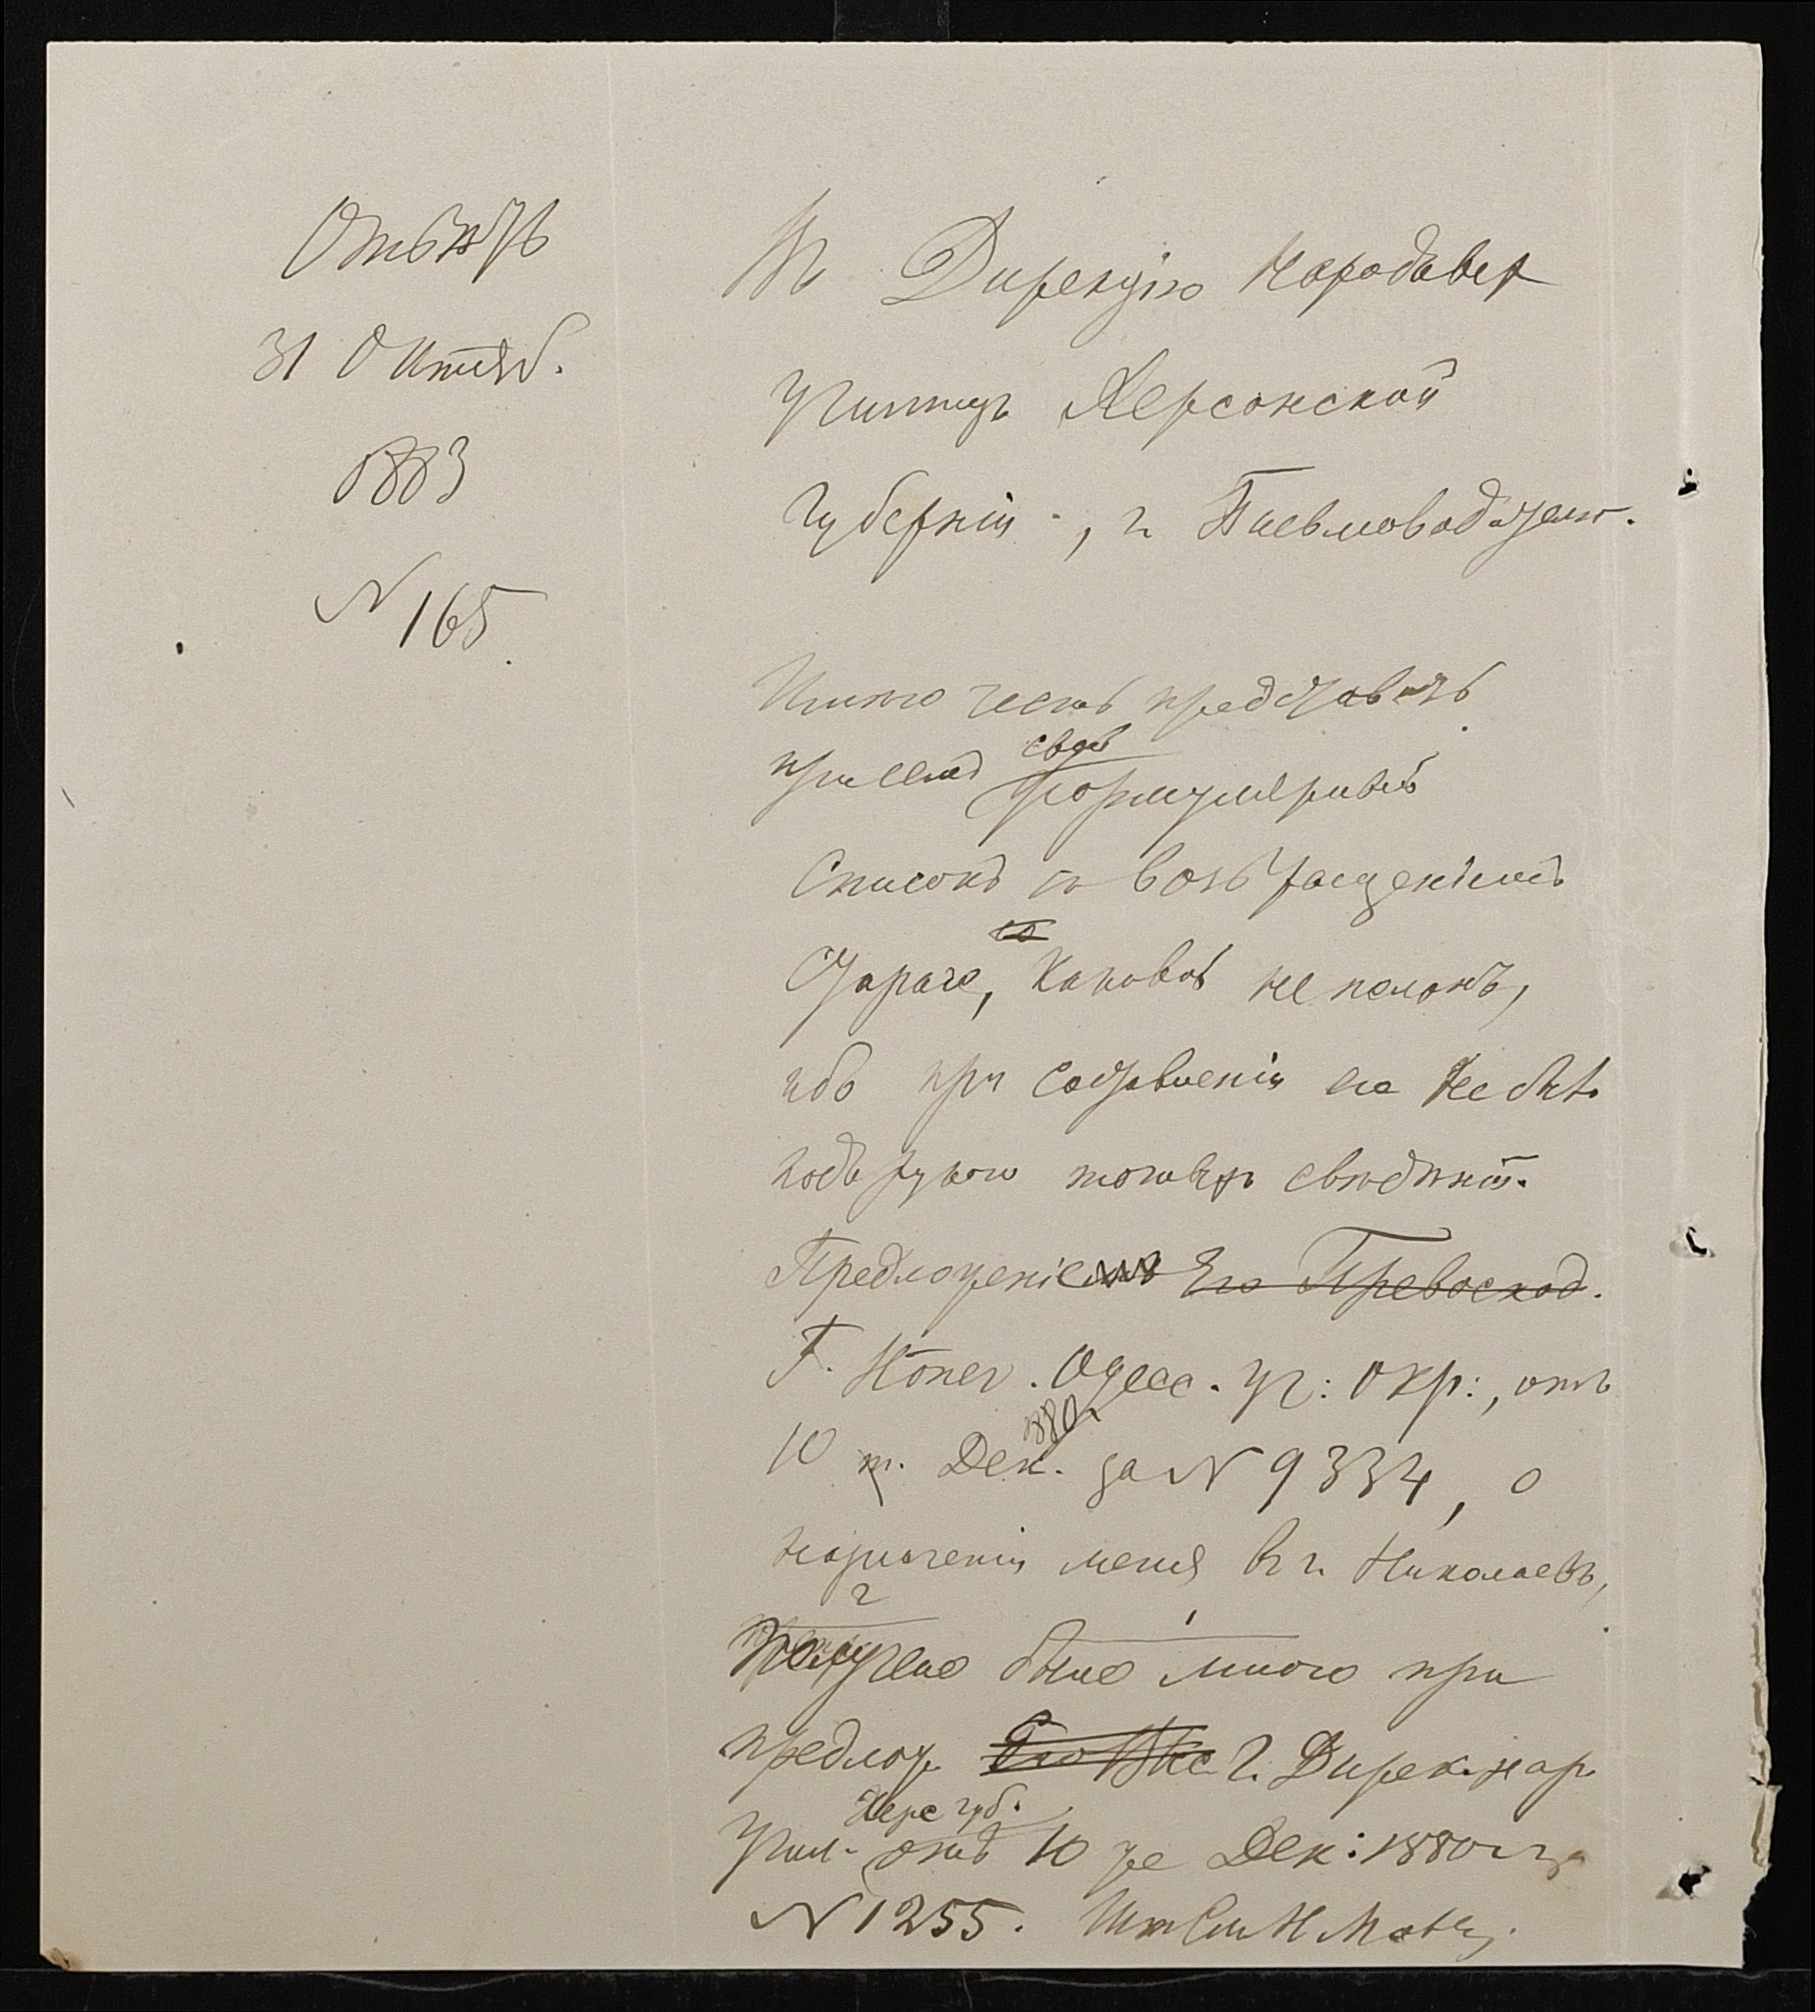 Отвѣтъ
31 Октяб.
1883
N 165.
Въ Дирекцію Народныхъ
Училищъ Херсонской
Губерніи, г. Письмоводителю.
Имѣю честь представить
при семъ свой формулярный
списокъ съ возвращеніемъ
стараго, каковой не полонъ,
ибо при составленіи его не было
подъ рукою точныхъ свѣдѣній.
Предложеніе Его Превосход.
Г. Попеч. Одесс. Уч: Окр:, отъ
10 Дек. 1880 за N 9334, о
назначеніи меня въ г. Николаевъ,
получено было мною при
предлож. Его Г. Дирек. нар.
Учил. Херс губ. отъ 10 же Дек: 1880 г за
N 1255.